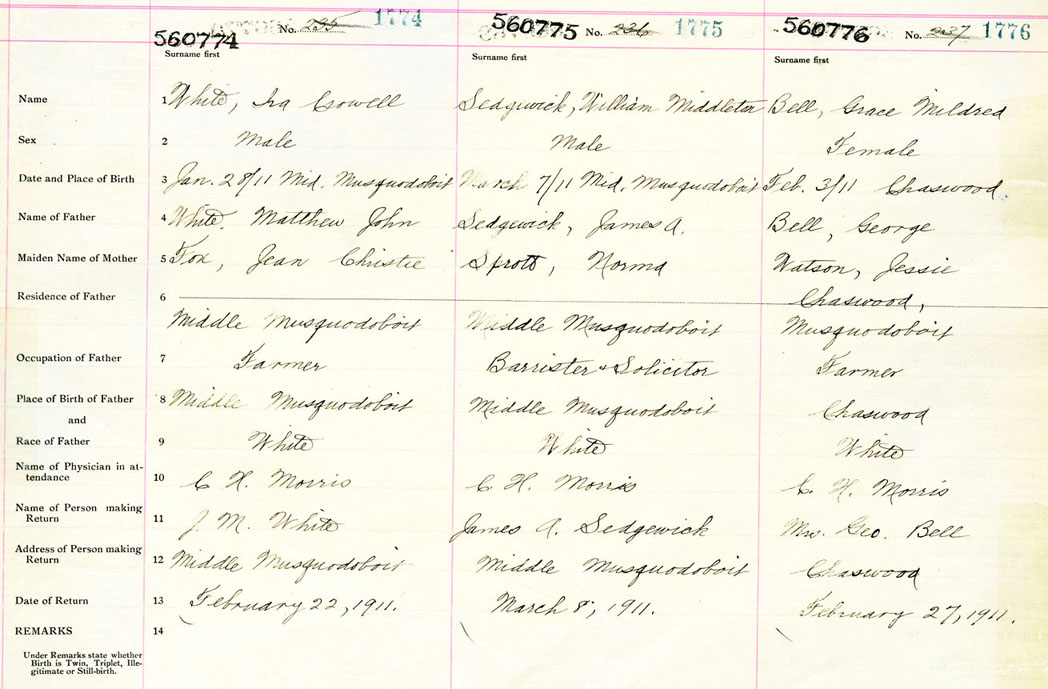 560774 No. 235 1774 560775 No. 236 1775 560776 No. 237 1776
Surname first Surname first Surname first
Name 1 White, Ira Crowell Sedgewick, William Middleton Bell, Grace Mildred
Sex 2 Male Male Female
Date and Place of Birth 3 Jan. 28/11 Mid. Musquodoboit March 7/11 Mid. Musquodoboit Feb. 3/11 Chaswood.
Name of Father 4 White, Matthew John Sedgewick, James A. Bell, George
Maiden Name of Mother 5 Fox, Jean Christie Sprott, Norma Watson, Jessie
Residence of Father 6 Chaswood,
Middle Musquodoboit Middle Musquodoboit Musquodoboit
Occupation of Father 7 Farmer Barrister & Solicitor Farmer
Place of Birth of Father 8 Middle Musquodoboit Middle Musquodoboit Chaswood
and
Race of Father 9 White White White
Name of Physician in at-
tendance 10 C. H. Morris C. H. Morris C. H. Morris
Name of Person making
Return 11 J. M. White James A. Sedgewick Mrs. Geo. Bell
Address of Person making
Return 12 Middle Musquodoboit Middle Musquodoboit Chaswood
Date of Return 13 February 22, 1911. March 8, 1911. February 27, 1911.
REMARKS 14
Under Remarks state whether
Birth is Twin, Triplet, Ille-
gitimate or Still-birth.